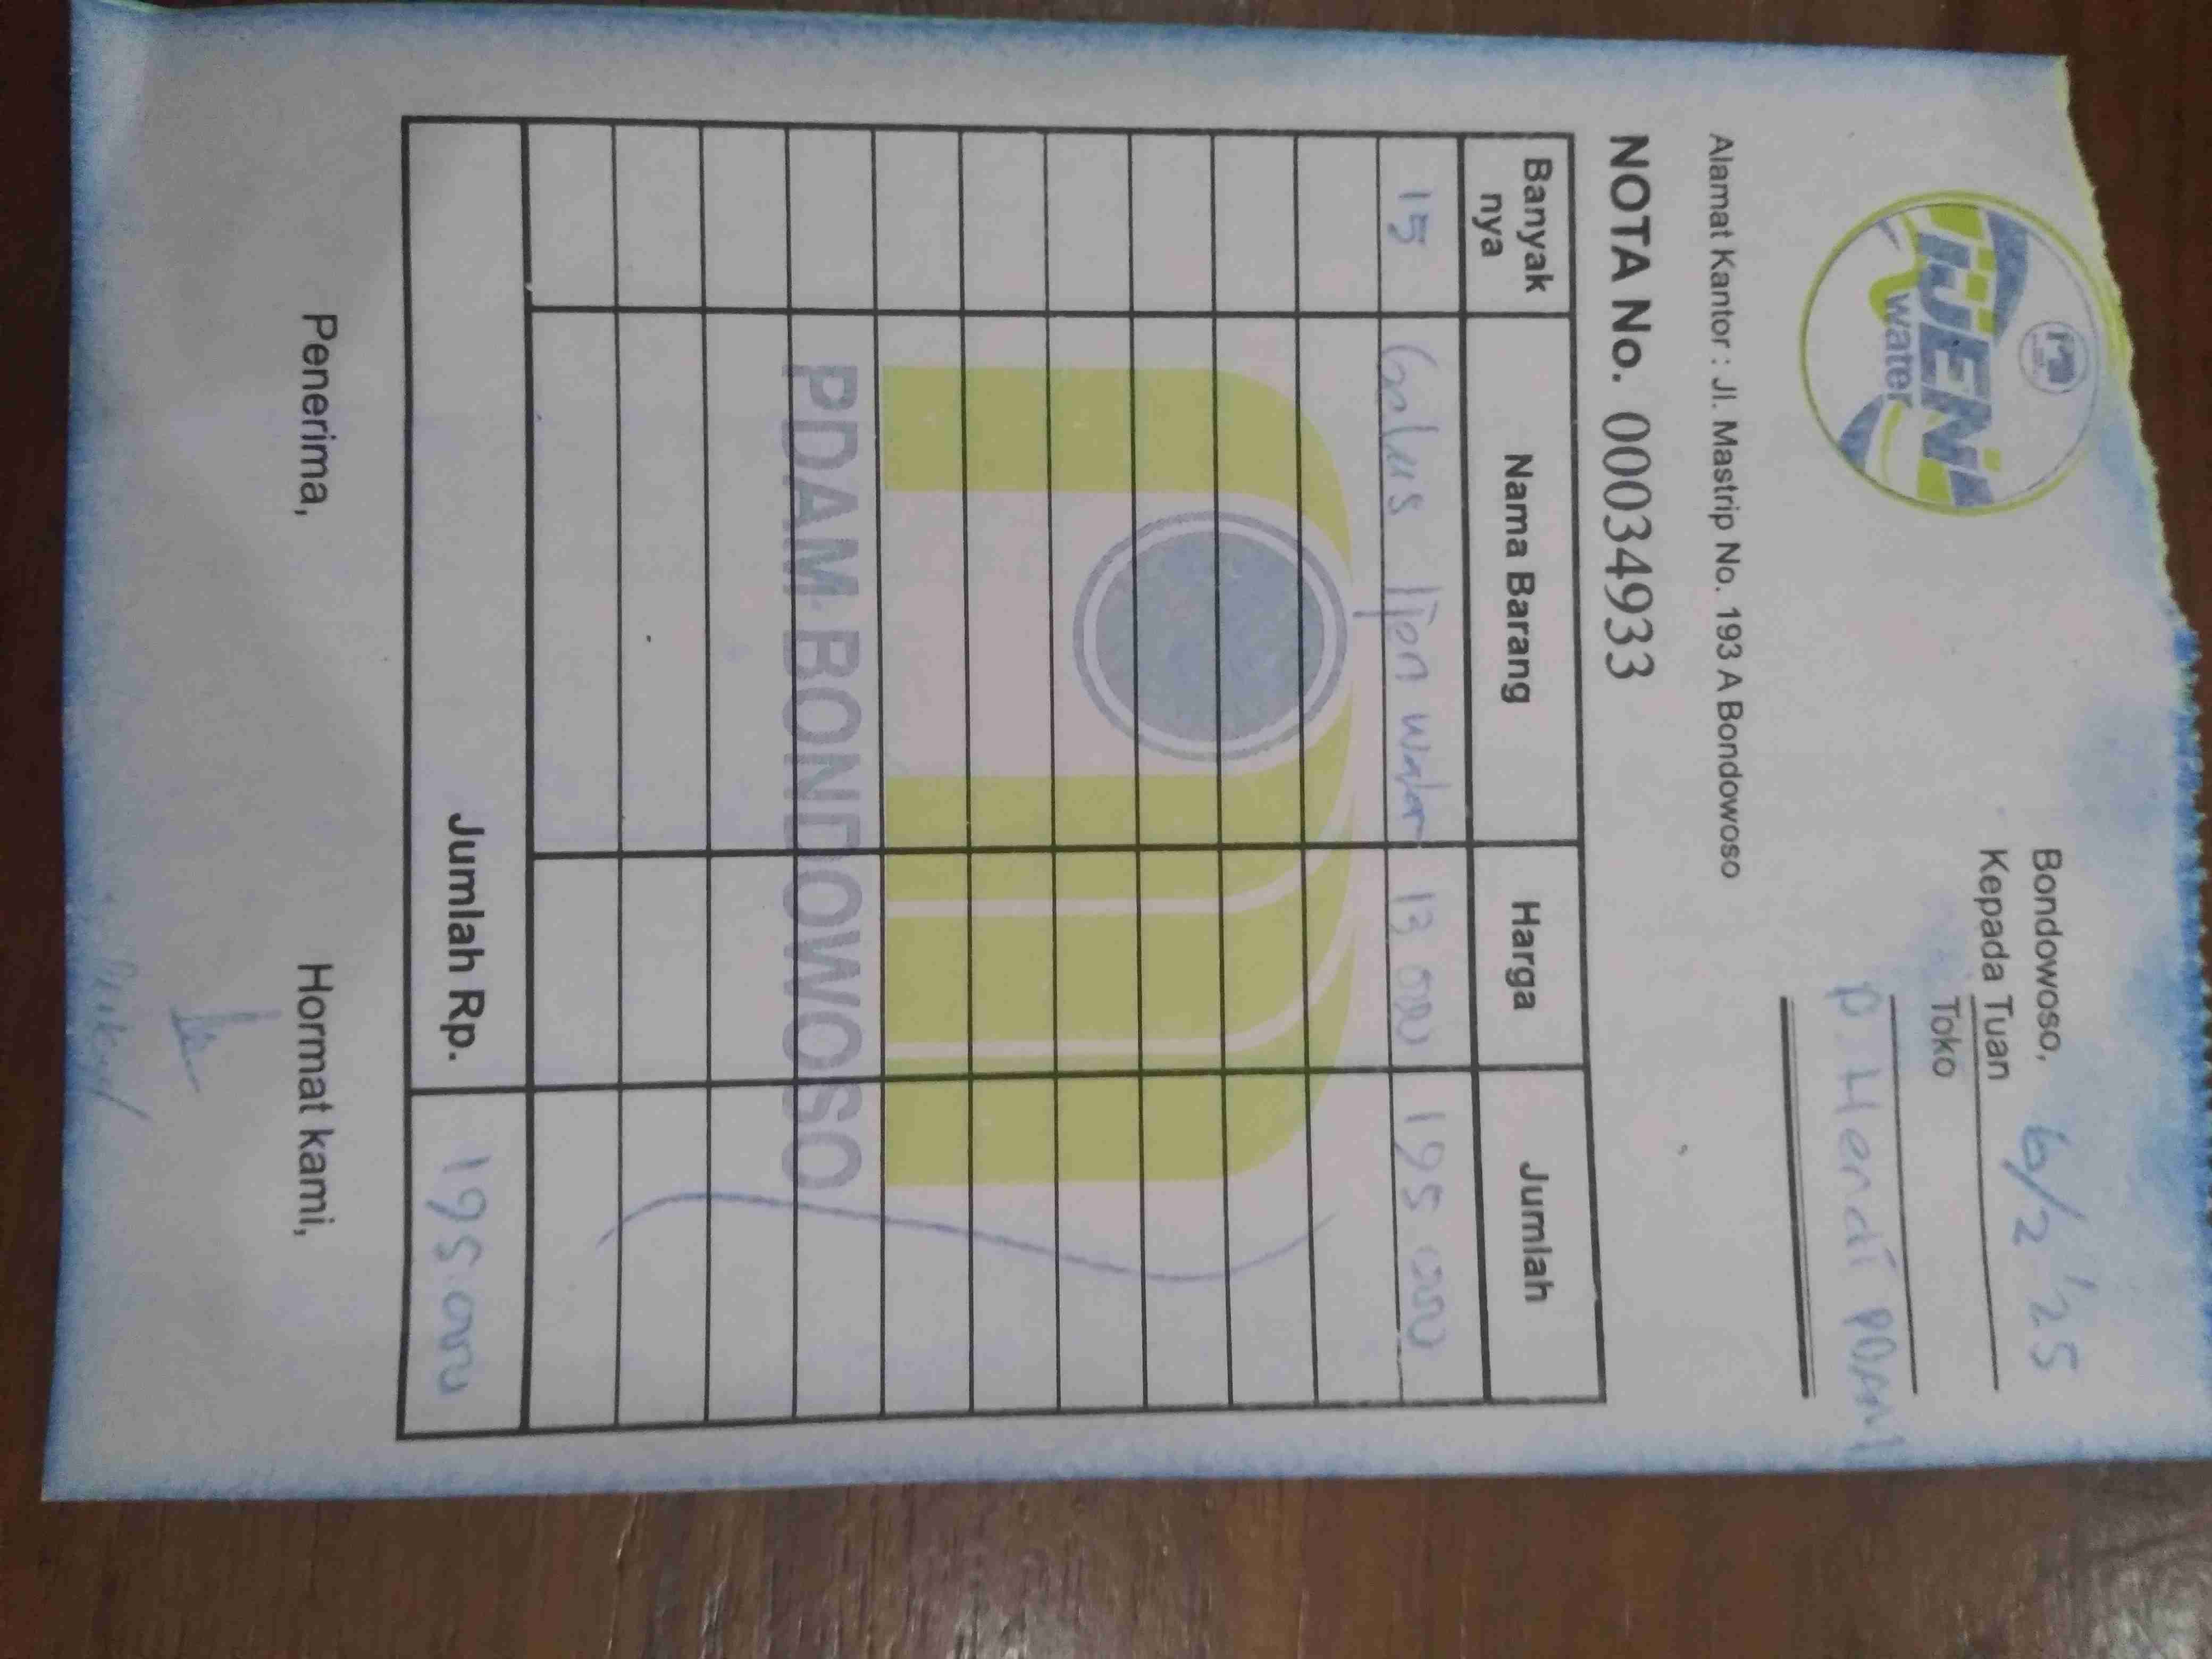 IJEN
water
Bondowoso, 6/2 '25
Kepada Tuan
Toko
P. Hendi PDAM
Alamat Kantor : Jl. Mastrip No. 193 A Bondowoso
NOTA No. 00034933
Banyak nya Nama Barang Harga Jumlah
15 Galus Ijen water 13 000 195 000
PDAM BONDOWOSO
Jumlah Rp. 195.000
Penerima, Hormat kami,